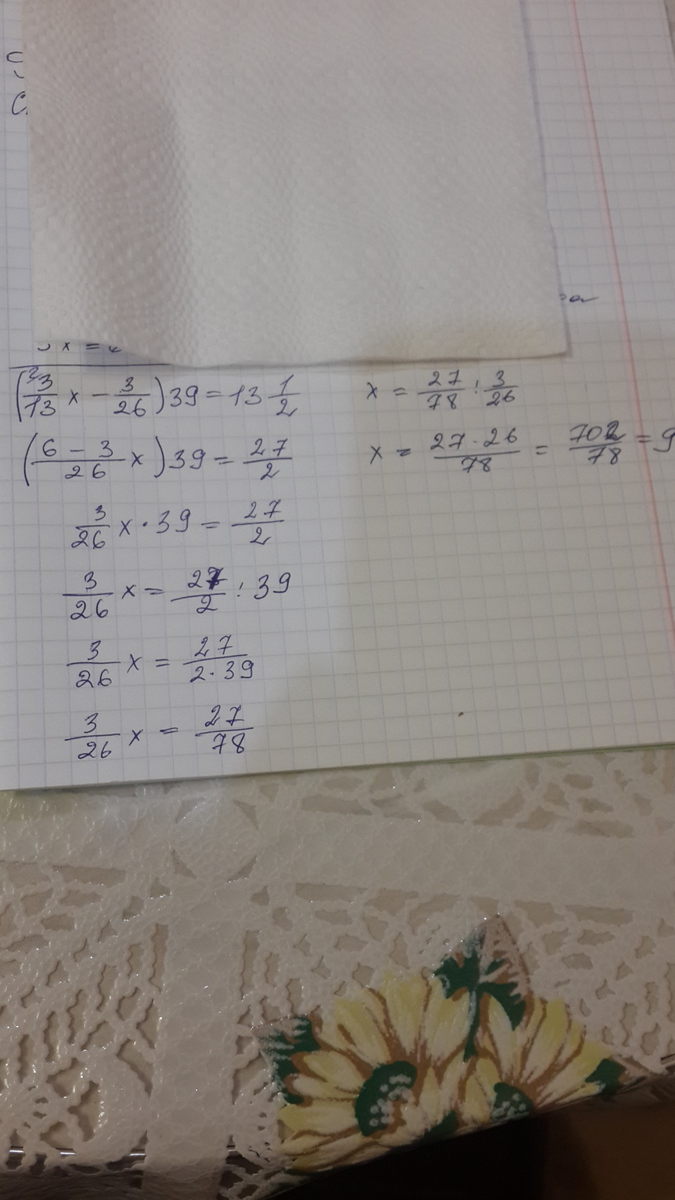 (3/13 x - 3/26) 39 = 13 1/2
(6 - 3/26 x) 39 = 27/2
3/26 x · 39 = 27/2
3/26 x = 27/2 : 39
3/26 x = 27/(2·39)
3/26 x = 27/78
x = 27/78 : 3/26
x = 27·26/78 = 702/78 = 9